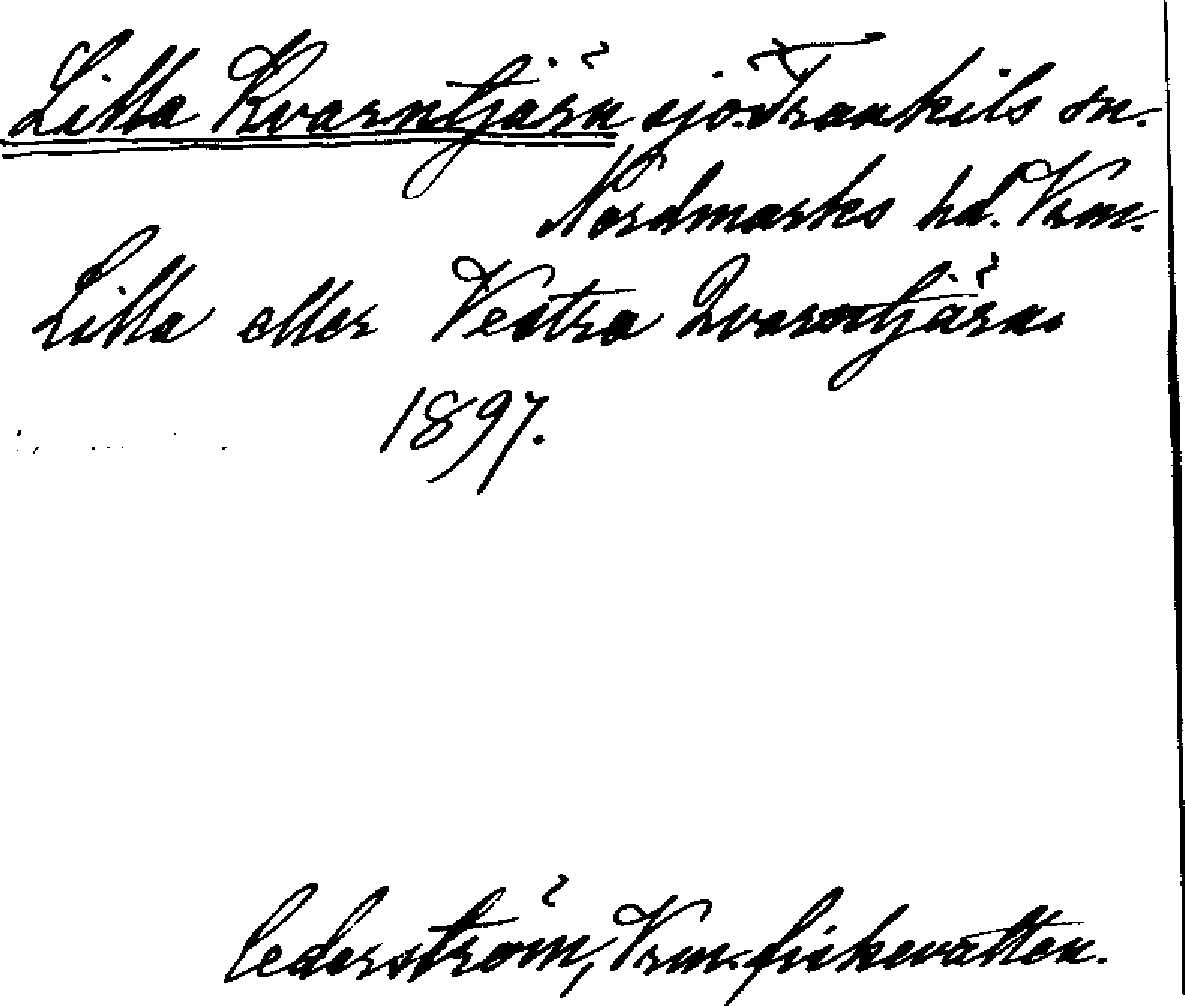 Litla Kvarntjärn sjö. Trankils sn.
Nordmarks hd. Vrm.
Lilla eller Vestra Qvarntjärn.
1897.
Cederström, Vrm. fiskevatten.